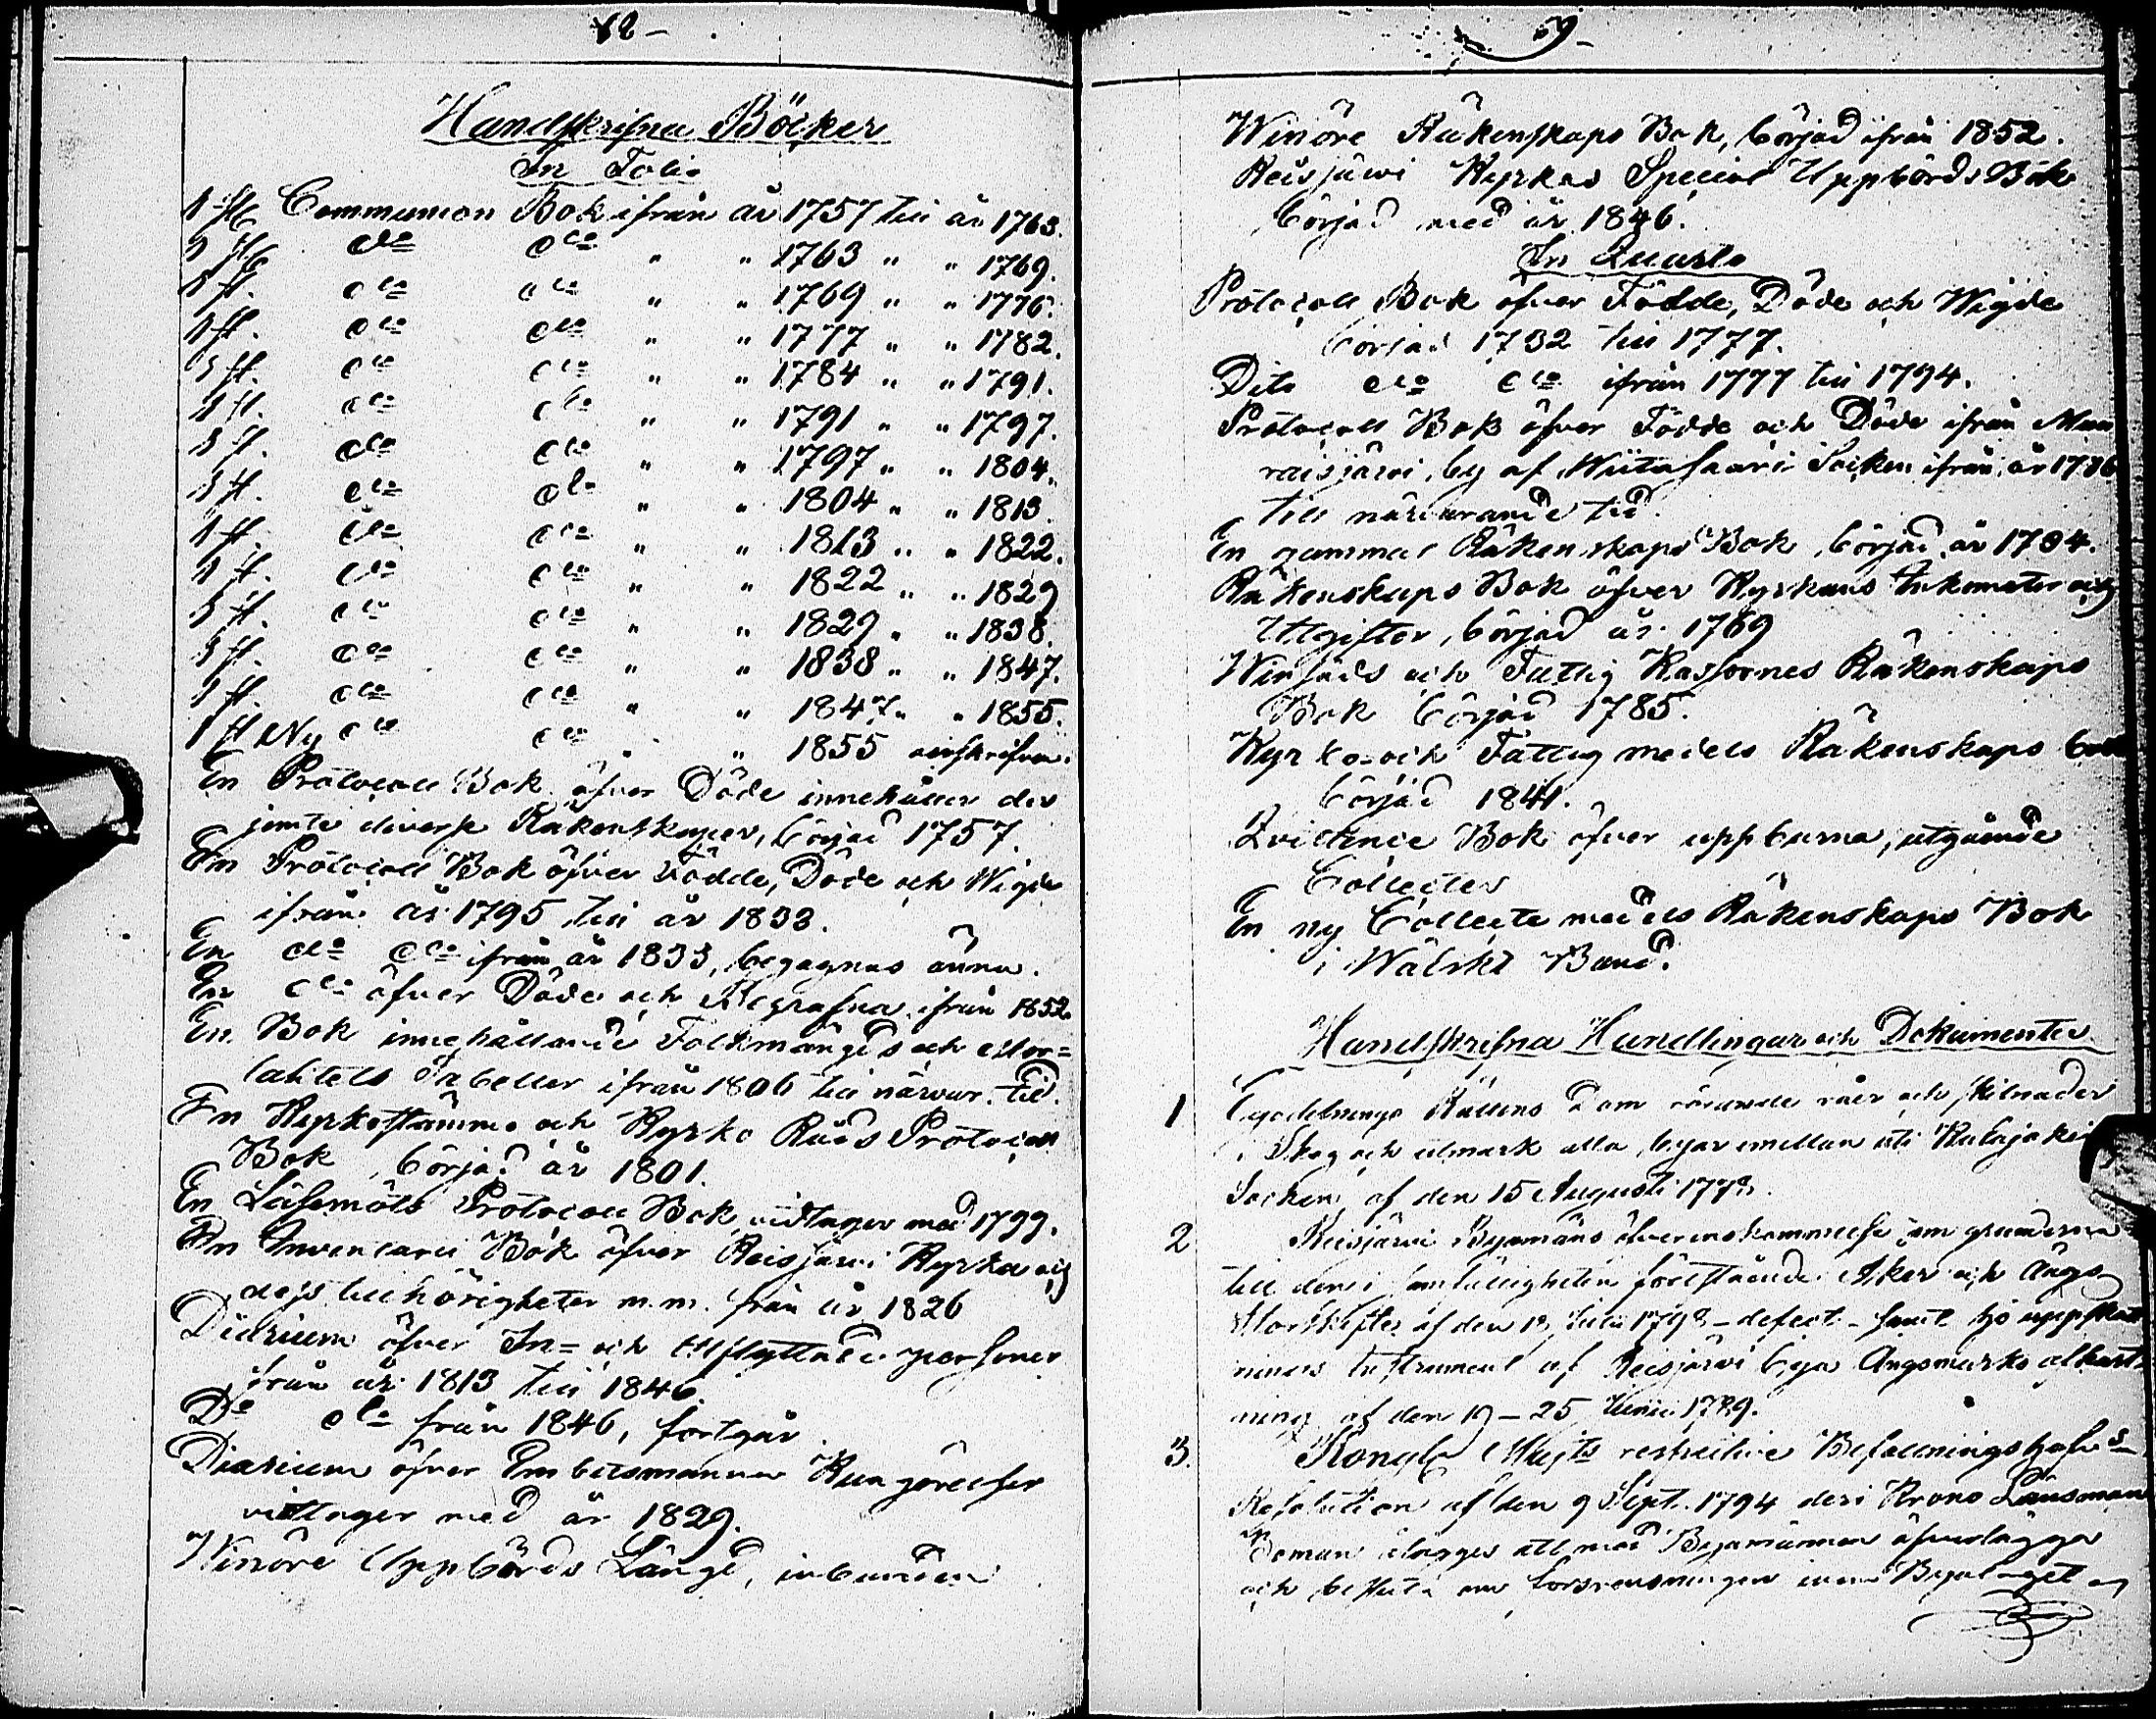 Handskrifna Böcker
In Folio
1 st. Communion Bok ifrån år 1757 till år 1763.
1 st. do do " " 1763 " " 1769.
1 st. do do " " 1769 " " 1776.
1 st. do do " " 1777 " " 1782.
1 st. do do " " 1784 " " 1791.
1 st. do do " " 1791 " " 1797.
1 st. do do " " 1797 " " 1804.
1 st. do do " " 1804 " " 1813.
1 st. do do " " 1813 " " 1822.
1 st. do do " " 1822 " " 1829
1 st. do do " " 1829 " " 1838.
1 st. do do " " 1838 " " 1847.
1 st. do do " " 1847 " " 1855.
1 st Ny do do " " 1855 oinskrifven.
En Protocolls Bok öfver Döde innehåller der
jemte diverse Räkenskaper, börjad 1757.
En Protocolls Bok öfver Födde, Döde och Wigde
ifrån år 1795 till år 1833.
En do do ifrån år 1833, begagnas ännu.
En do öfver Döde och Begrafna ifrån 1852.
En Bok innehållande Folkmängds och Mor=
talitets Tabeller ifrån 1806 till närvar. tid.
En Kyrkostämmo och Kyrko Råds Protocolls
Bok börjad år 1801.
En Läsemöts Protocolls Bok vidtager med 1799.
En Inventarii Bok öfver Reisjärvi Kyrka och
dess tillhörigheter m.m. från år 1826
Diarium öfver In= och Utflyttade personer
från år 1813 till 1846.
Do do från 1846, fortgår.
Diarium öfver Embetsmanna Kungörelser
vidtager med år 1829.
Winöre Uppbörds Längd, inbunden
Winöre Räkenskaps Bok, börjad ifrån 1852.
Reisjärvi Kyrkas Special Uppbörds Bok
börjad med år 1846.
In Quarto
Protocolls Bok öfver Födde, Döde och Wigde
börjad 1732 till 1777.
Dito do do ifrån 1777 till 1794.
Protocolls Bok öfver Födde och Döde ifrån
raisjärvi by af Wiitasaari Socken ifrån år 1786
till närvarande tid.
En gammal Räkenskaps Bok börjad år 1734.
Räkenskaps Bok öfver Kyrkans Inkomster och
Utgifter, börjad år 1769
Winsäds och Fattig Kassornes Räkenskaps
Bok börjad 1785.
Kyrko och Fattig medels Räkenskaps bok
börjad 1841.
Qvittence Bok öfver uppburna, utgående
Collecter
En ny Collecte medels Räkenskaps Bok
i Wälskt Band.
Handskrifna Handlingar och Dokumenter
1 Egodelnings Rättens Dom rörande råer och skilnader
i Skog och utmark alla byar emellan uti Kalajoki
Socken af den 15 Augusti 1778.
2 Reisjärvi Byamäns öfverenskommelse om grunderna
till den i samfälligheten förestående Åker och Ängs
Storskiftes af den 13 Julii 1798 - defect - samt
Instrument af Reisjärvi bya Ängsmarks
af den 19 - 25 Junii 1789.
3. Kongl. Majts respective Befallningshafves
Resolution af den 9 Sept. 1794 deri Krono Länsman
ålägges att med Byamännen öfverlägga
och besluta om inom Byalaget